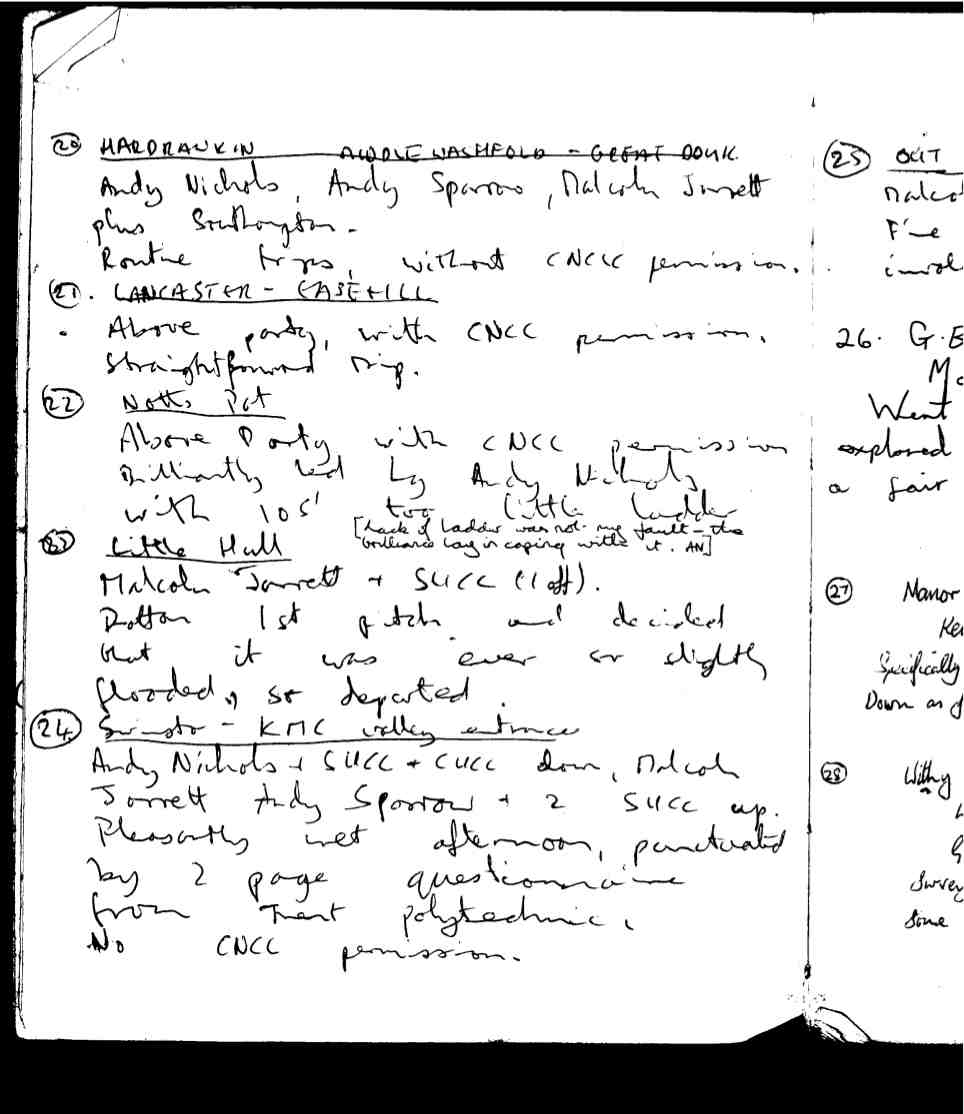 20 HARDRAWKIN MIDDLE WASHFOLD - GREAT DOUK
Andy Nichols, Andy Sparrow, Malcolm Jarrett
plus Southampton.
Routine trips, without CNCC permission.
21. LANCASTER - EASEGILL
Above party, with CNCC permission.
Straightforward trip.
22 Notts Pot
Above Party with CNCC permission
Brilliantly led by Andy Nichols
with 105' too little ladder
[Lack of ladder was not my fault - the
brilliance lay in coping with it. AN]
23 Little Hull
Malcolm Jarrett + SUCC (1 off).
Bottom 1st pitch and decided
that it was ever so slightly
flooded, so departed.
24. Swinsto - KMC valley entrance
Andy Nichols + SUCC + CUCC down, Malcolm
Jarrett Andy Sparrow + 2 SUCC up.
Pleasantly wet afternoon, punctuated
by 2 page questionnaire
from Trent polytechnic.
No CNCC permission.
25 OCT
Malcol
Fine
invol
26. G.B
Ma
Went
explored
a fair
27 Manor
Ke
Specifically
Down as f
28 Withy
Survey
Some